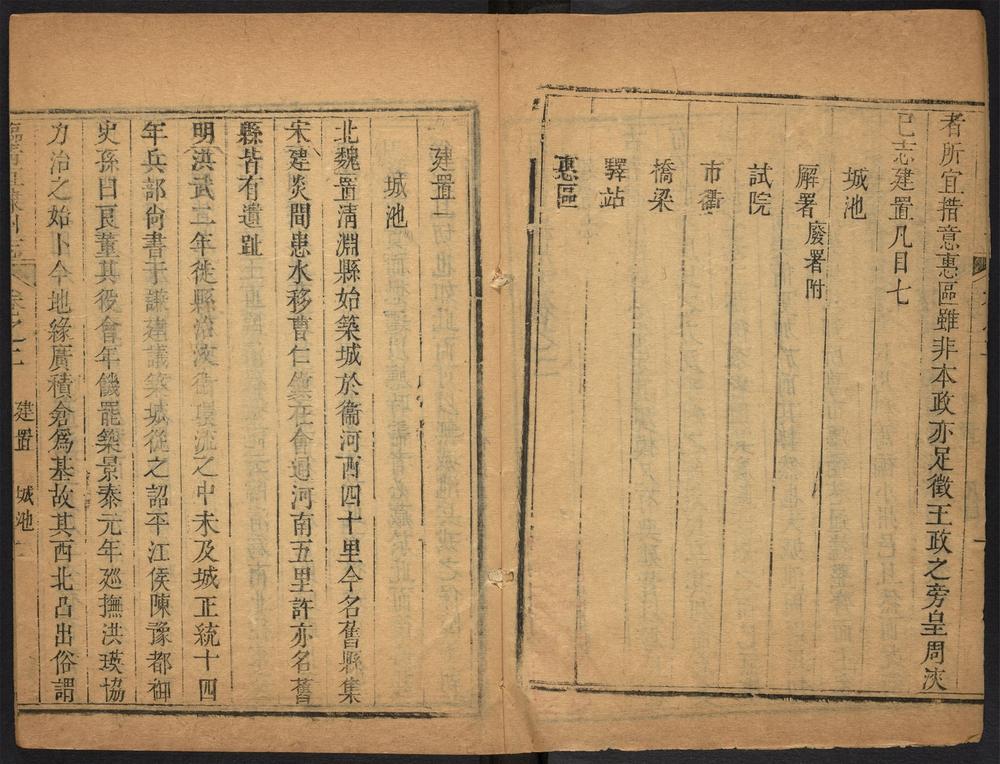 者所宜措意惠區雖非本政亦足徵王政之旁皇周浹
已志建置凡目七
城池
廨署廢署附
試院
市衢
橋梁
驛站
惠區
建置一
城池
北魏置淸淵縣始築城於衞河西四十里今名舊縣集
宋建炎間患水移曹仁鎭在會通河南五里許亦名舊
縣皆有遺趾
明洪武二年徙縣治汶衞環流之中未及城正統十四
年兵部尙書于謙建議築城從之詔平江侯陳豫都御
史孫曰良董其役會年饑罷築景泰元年巡撫洪瑛協
力治之始卜今地緣廣積倉爲基故其西北凸出俗謂
卷之二 建置 城池 一